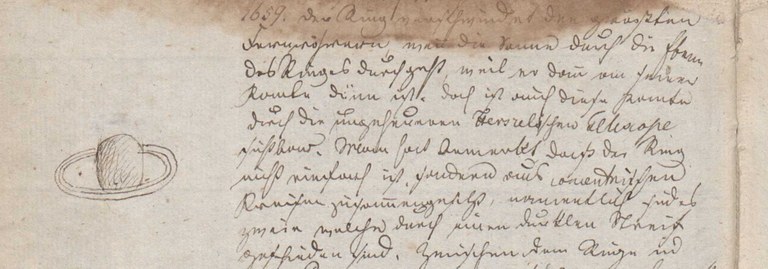 1659. Der Ring verschwindet den stärksten
Fernröhren, wenn die Sonne durch die Ebene
des Ringes durchgeht, weil er dann am
Kante dünn ist. Doch ist auch diese Kante
durch die ungeheueren Herschelschen Telescope
sichtbar. Man hat bemerkt daß der Ring
nicht einfach ist sondern aus concentrischen
Kreisen zusammengesetzt, namentlich
zweien welche durch einen dunklen Streif
geschieden sind. Zwischen dem Ringe und